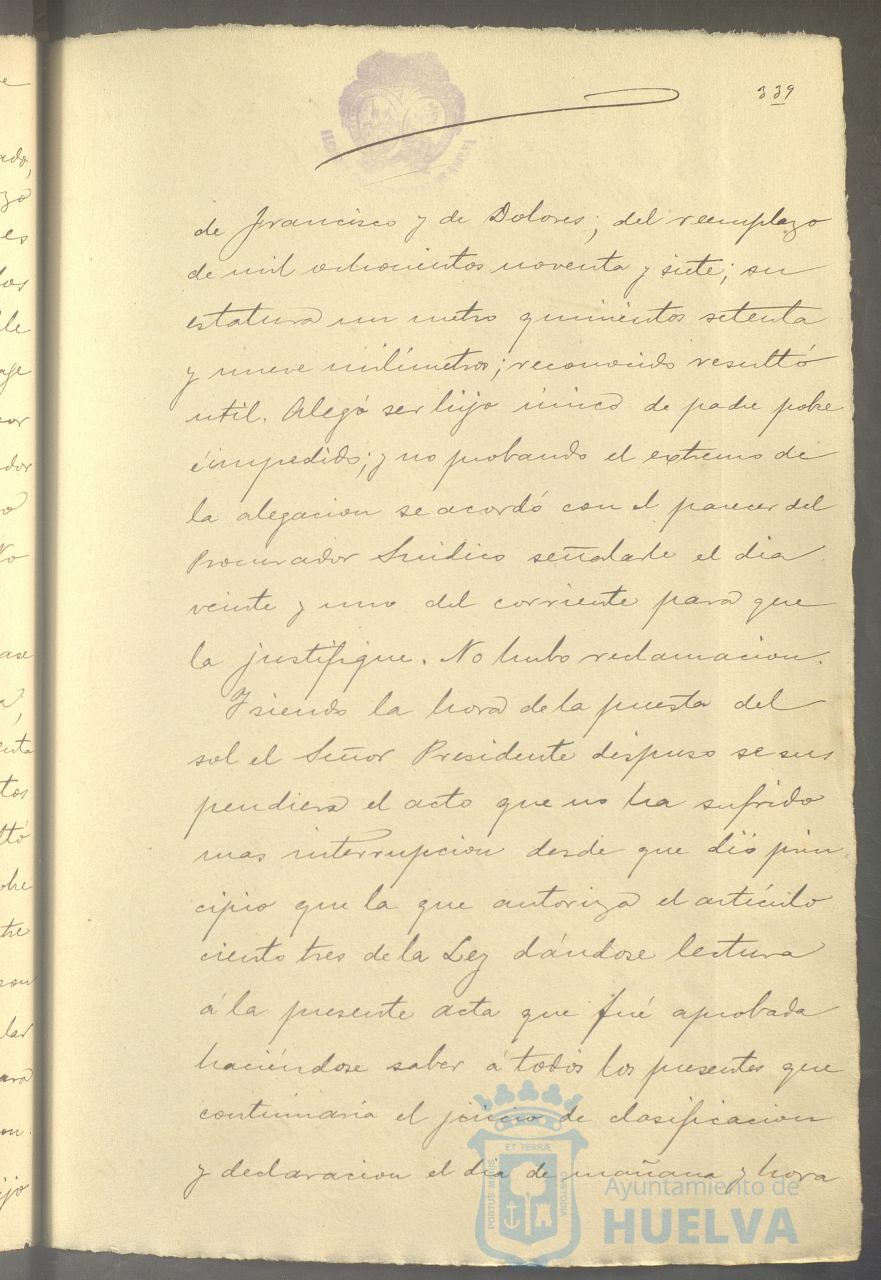 339
de Francisco y de Dolores; del reemplazo
de mil ochocientos noventa y siete; su
estatura un metro quinientos setenta
y nueve milímetros; reconocido resultó
util. Alegó ser hijo único de padre pobre
é impedido; y no probando el extremo de
la alegacion se acordó con el parecer del
Procurador Sindico señalarle el dia
veinte y uno del corriente para que
la justifique. No hubo reclamacion.
Y siendo la hora de la puesta del
sol el Señor Presidente dispuso se sus
pendiera el acto que no ha sufrido
mas interrupcion desde que dió prin
cipio que la que autoriza el artículo
ciento tres de la Ley dándose lectura
á la presente acta que fué aprobada
haciéndose saber á todos los presentes que
continuaría el juicio de clasificacion
y declaracion el dia de mañana y hora
ET TERRÆ
PORTUS MARIS
CUSTODIA
Ayuntamiento de
HUELVA